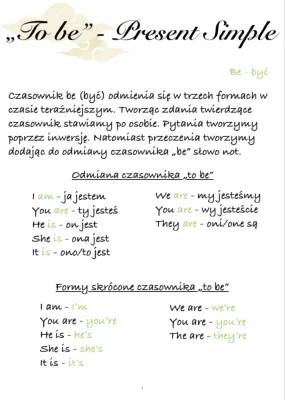 „To be” - Present Simple
Be - być
Czasownik be (być) odmienia się w trzech formach w
czasie teraźniejszym. Tworząc zdania twierdzące
czasownik stawiamy po osobie. Pytania tworzymy
poprzez inwersję. Natomiast przeczenia tworzymy
dodając do odmiany czasownika „be” słowo not.
Odmiana czasownika „to be”
I am - ja jestem
You are - ty jesteś
He is - on jest
She is - ona jest
It is - ono/to jest
We are - my jesteśmy
You are - wy jesteście
They are - oni/one są
Formy skrócone czasownika „to be”
I am - I'm
You are - you're
He is - he's
She is - she's
It is - it's
We are - we're
You are - you're
The are - they're